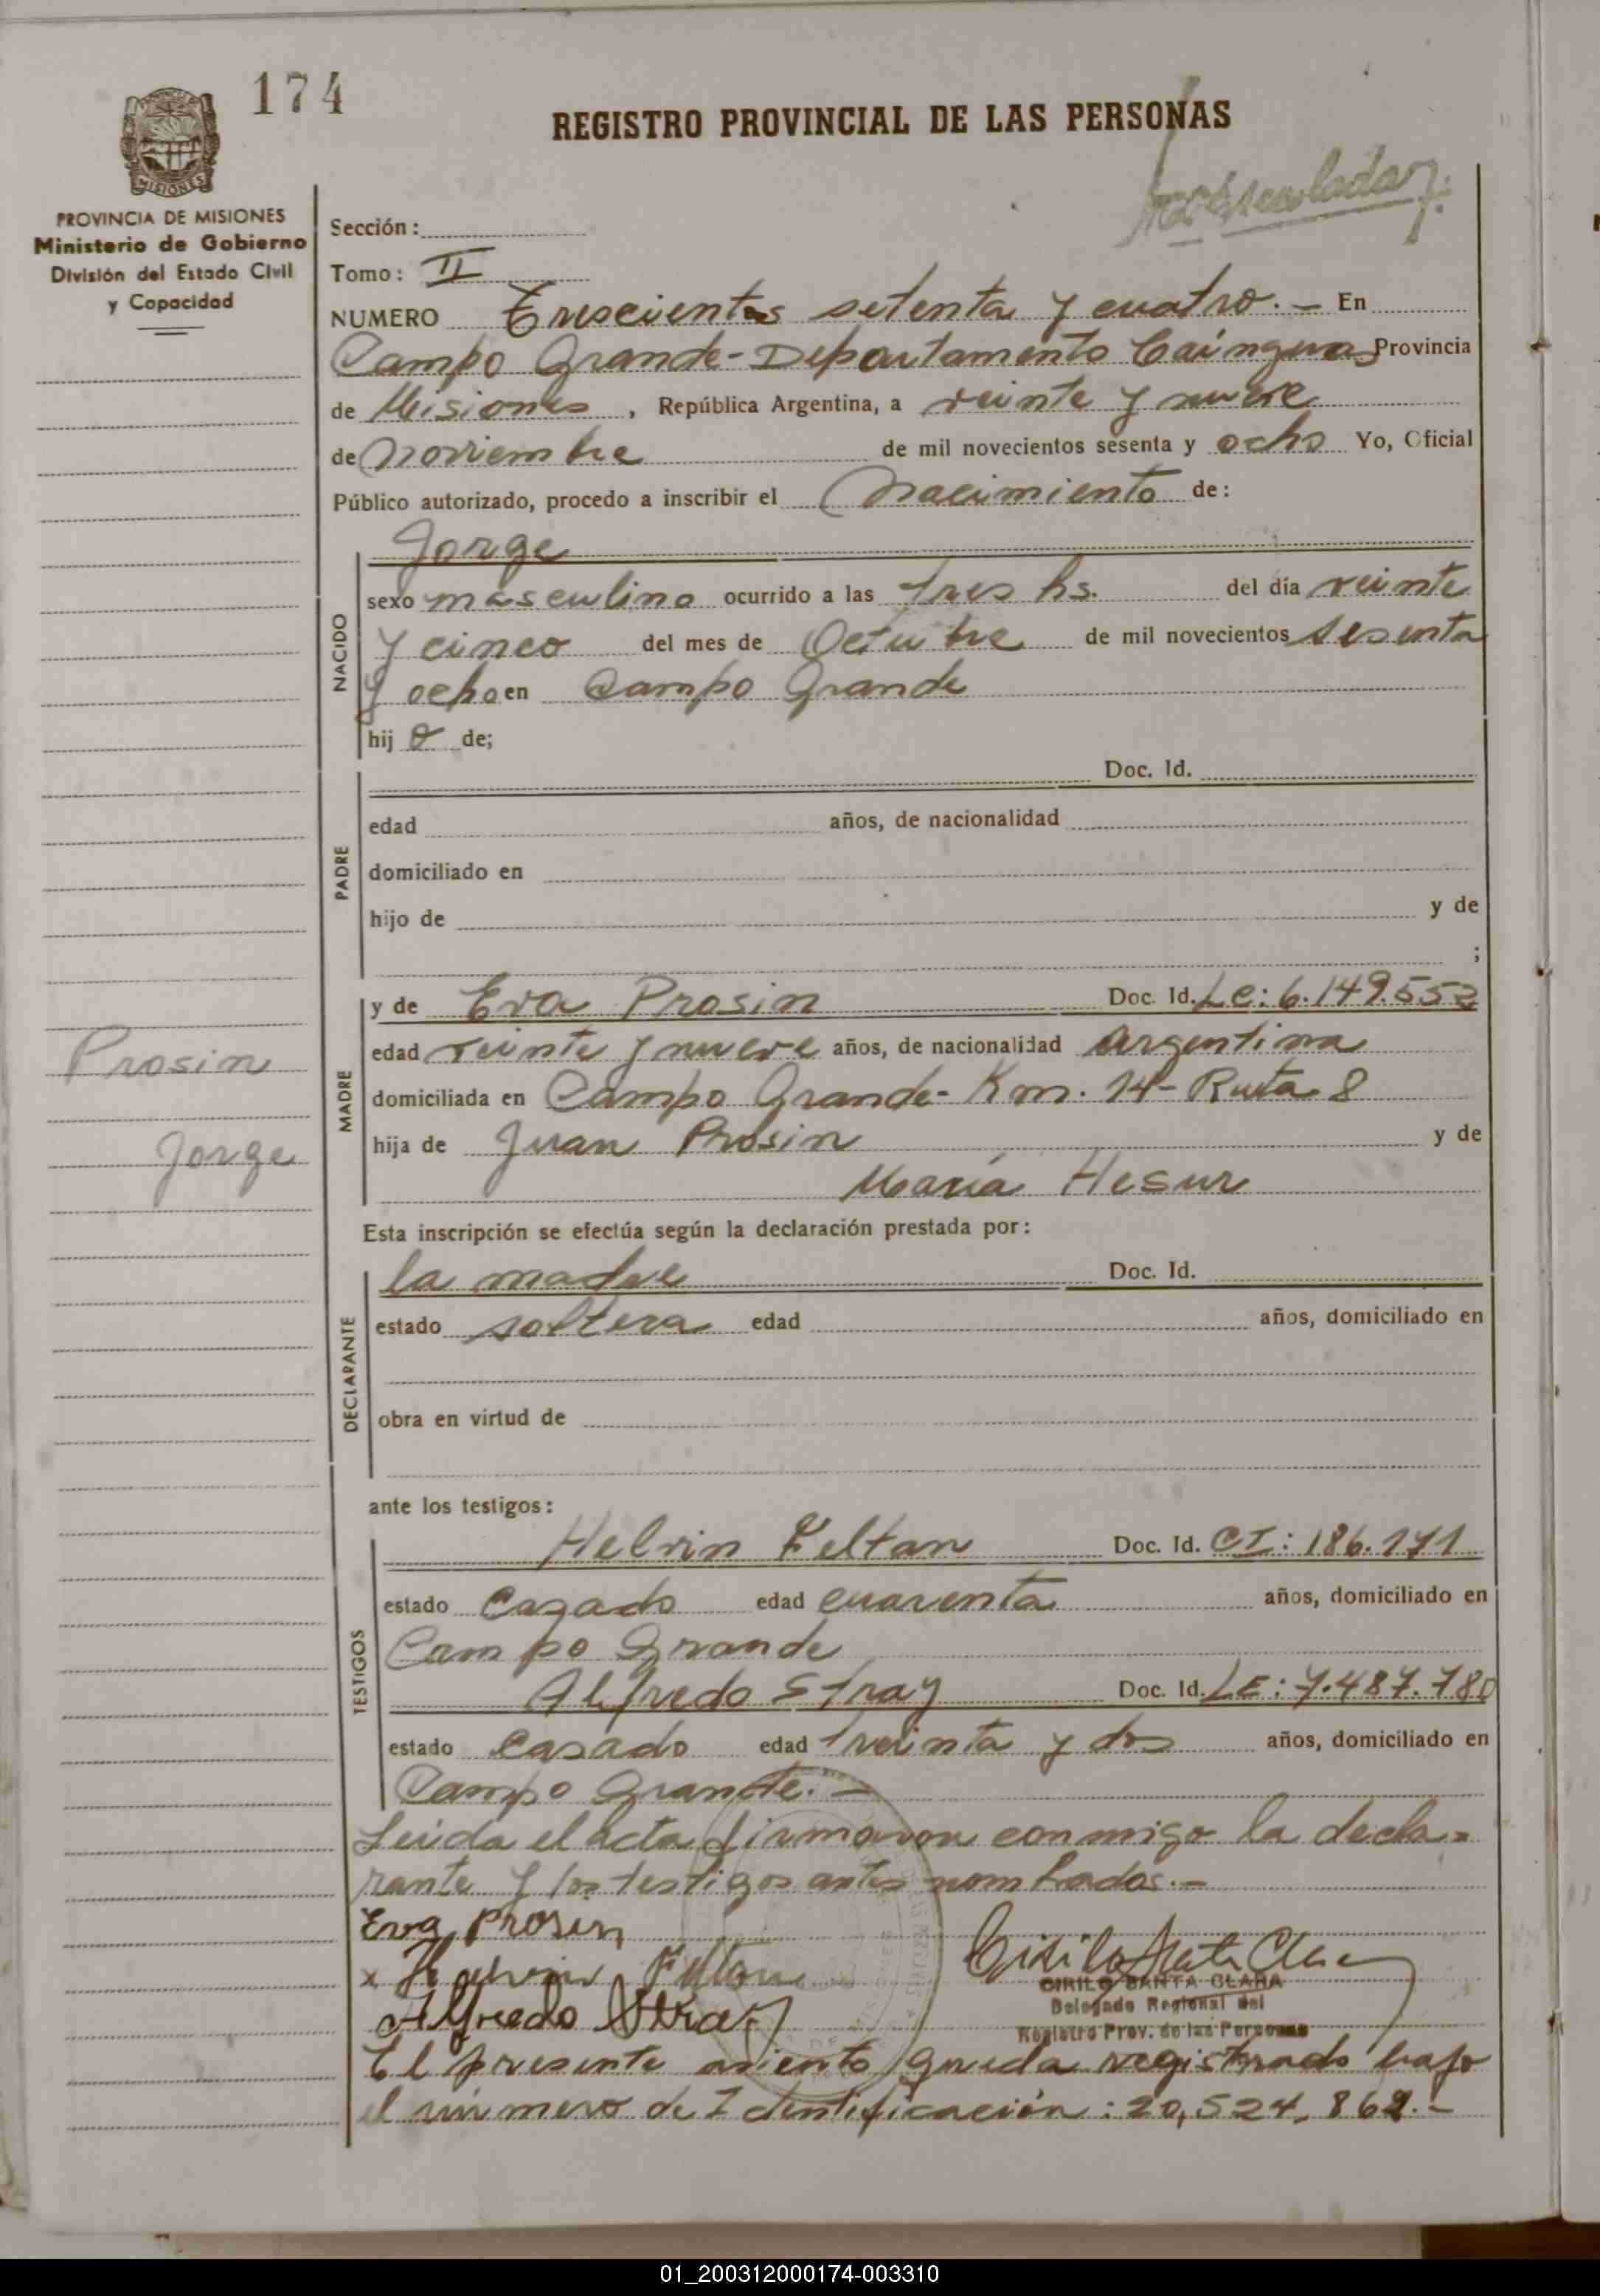 174
REGISTRO PROVINCIAL DE LAS PERSONAS
MISIONES
PROVINCIA DE MISIONES
Ministerio de Gobierno
División del Estado Civil
y Capacidad
Sección:
Tomo: II
NUMERO Trescientos setenta y cuatro.- En
Campo Grande-Departamento Caínguas Provincia
de Misiones, República Argentina, a veinte y nueve
de Noviembre de mil novecientos sesenta y ocho Yo, Oficial
Público autorizado, procedo a inscribir el Nacimiento de:
Jorge
NACIDO
sexo masculino ocurrido a las tres hs. del día veinte
y cinco del mes de Octubre de mil novecientos sesenta
y ocho en Campo Grande
hij o de;
PADRE
Doc. Id.
edad años, de nacionalidad
domiciliado en
hijo de y de
;
MADRE
y de Eva Prosin Doc. Id. LC: 6.149.552
edad veinte y nueve años, de nacionalidad argentina
domiciliada en Campo Grande- Km. 14- Ruta 8
hija de Juan Prosin y de
María Hesur
Prosin
Jorge
Esta inscripción se efectúa según la declaración prestada por:
DECLARANTE
la madre Doc. Id.
estado soltera edad años, domiciliado en
obra en virtud de
ante los testigos:
TESTIGOS
Helvin Feltan Doc. Id. CI: 186.171
estado casado edad cuarenta años, domiciliado en
Campo Grande
Alfredo Stray Doc. Id. LE: 7.487.780
estado casado edad treinta y dos años, domiciliado en
Campo Grande.-
Leida el acta firmaron conmigo la decla-
rante y los testigos antes nombrados.-
Eva Prosin
x Feltan
Alfredo Stray
Cirilo Santa Clara
CIRILO SANTA CLARA
Delegado Regional del
Registro Prov. de las Personas
El presente asiento queda registrado bajo
el número de Identificación: 20,524,862.-
01_200312000174-003310